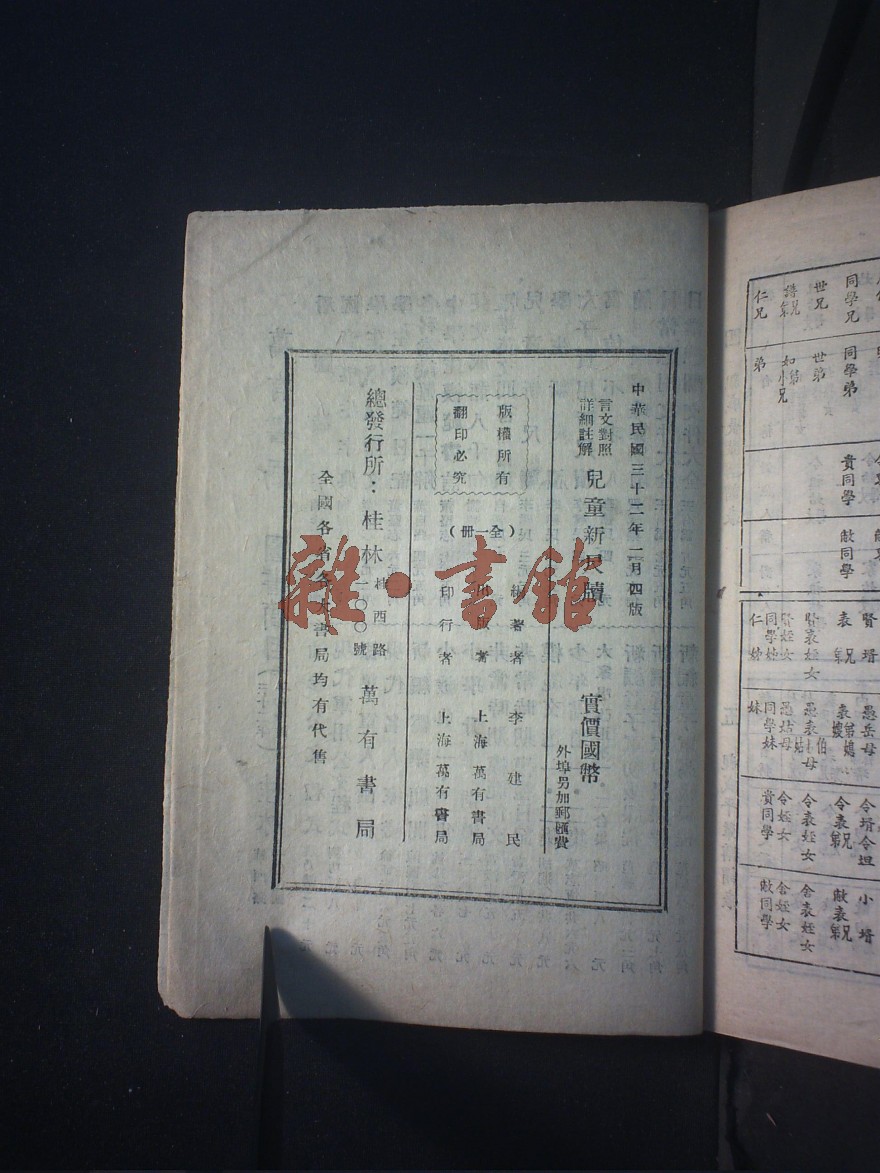 中華民國三十二年二月四版
言文對照
詳細註解
兒童新尺牘
實價國幣
外埠另加郵匯費
(全一冊)
版權所有
翻印必究
編著者 李建民
出版者 上海萬有書局
印行者 上海萬有書局
總發行所：桂林 桂西路一〇〇號 萬有書局
全國各省各大書局均有代售
雜·書館
同學兄
世兄
譜兄
仁兄
同學弟
世弟
弟
貴同學
敝同學
賢壻
表兄弟
賢表姪女
賢姪女
同學姊
仁姊
愚岳母
愚姑母
同學妹
妹
令壻令坦
令表兄弟
令表姪女
令姪女
貴同學
小壻
敝表兄弟
舍表姪女
舍姪女
敝同學